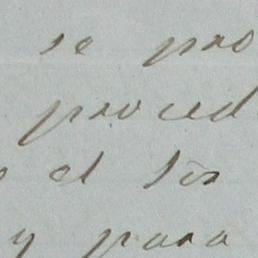 se pro
proced
el Sor
y para